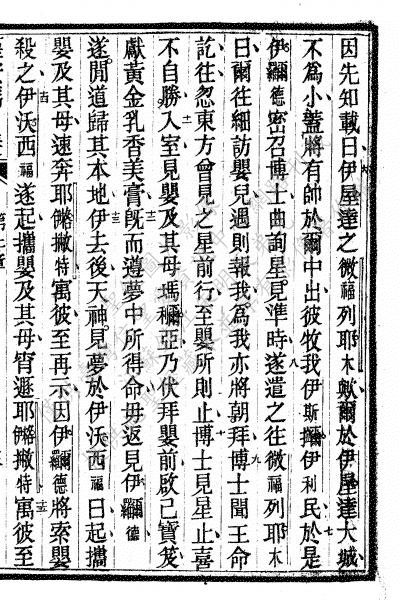 因先知載曰伊屋達之微福列耶木歟爾於伊屋達大城
不為小蓋將有帥於爾中出彼牧我伊斯攋伊利民於是
伊羅德密召博士曲詢星見準時遂遣之往微福列耶木
曰爾往細訪嬰兒遇則報我為我亦將朝拜博士聞王命
訖往忽東方曾見之星前行至嬰所則止博士見星止喜
不自勝入室見嬰及其母瑪穪亞乃伏拜嬰前啟己寶笈
獻黃金乳香美膏既而遵夢中所得命毋返見伊羅德
遂閒道歸其本地伊去後天神見夢於伊沃西福曰起攜
嬰及其母速奔耶撒特寓彼至再示因伊羅德將索嬰
殺之伊沃西福遂起攜嬰及其母宵遯耶撒特寓彼至